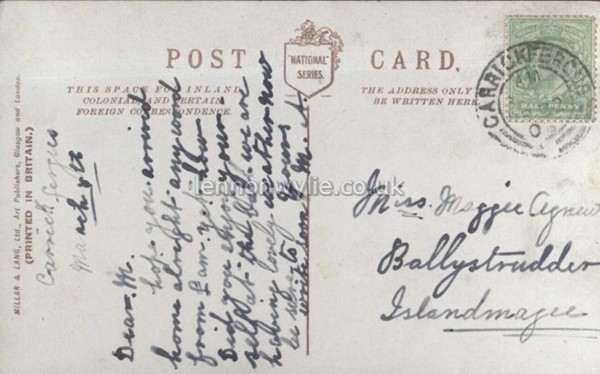 POST CARD.
"NATIONAL"
SERIES.
THIS SPACE FOR INLAND,
COLONIAL AND CERTAIN
FOREIGN CORRESPONDENCE.
THE ADDRESS ONLY
BE WRITTEN HERE.
HALFPENNY
CARRICKFERGUS
MILLAR & LANG, Ltd., Art Publishers, Glasgow and London.
(PRINTED IN BRITAIN.)
Carrickfergus
Dear M.
hope you arrived
home alright any word
from Sam yet how
Did you enjoy your
self at the Ball we are
having lovely weather now
be sure to
write soon M. A.
Yours
Miss. Maggie Agnew
Ballystrudder
Islandmagee
lennonwylie.co.uk